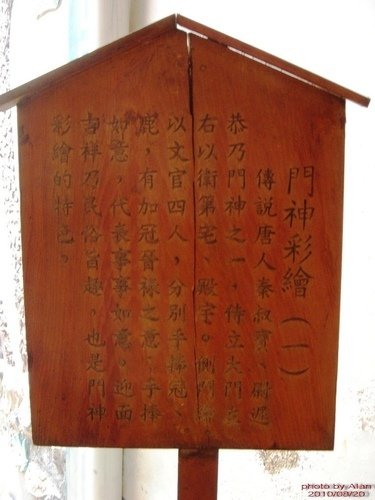 門神彩繪(一)
傳說唐人秦叔寶、尉遲
恭乃門神之一,侍立大門左
右以衛第宅、殿宇。側門繪
以文官四人,分別手捧冠、
鹿,有加冠晉祿之意;手捧
如意,代表事事如意。迎面
吉祥乃民俗旨趣。也是門神
彩繪的特色。
photo by Alan
2010/08/20